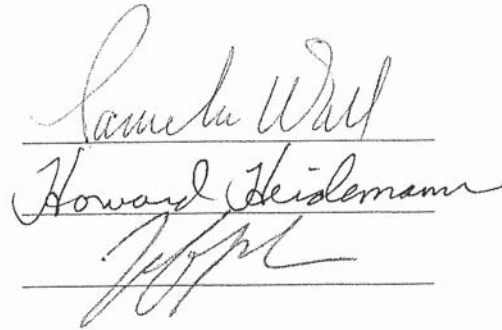 Pamela Wall
Howard Heidemann